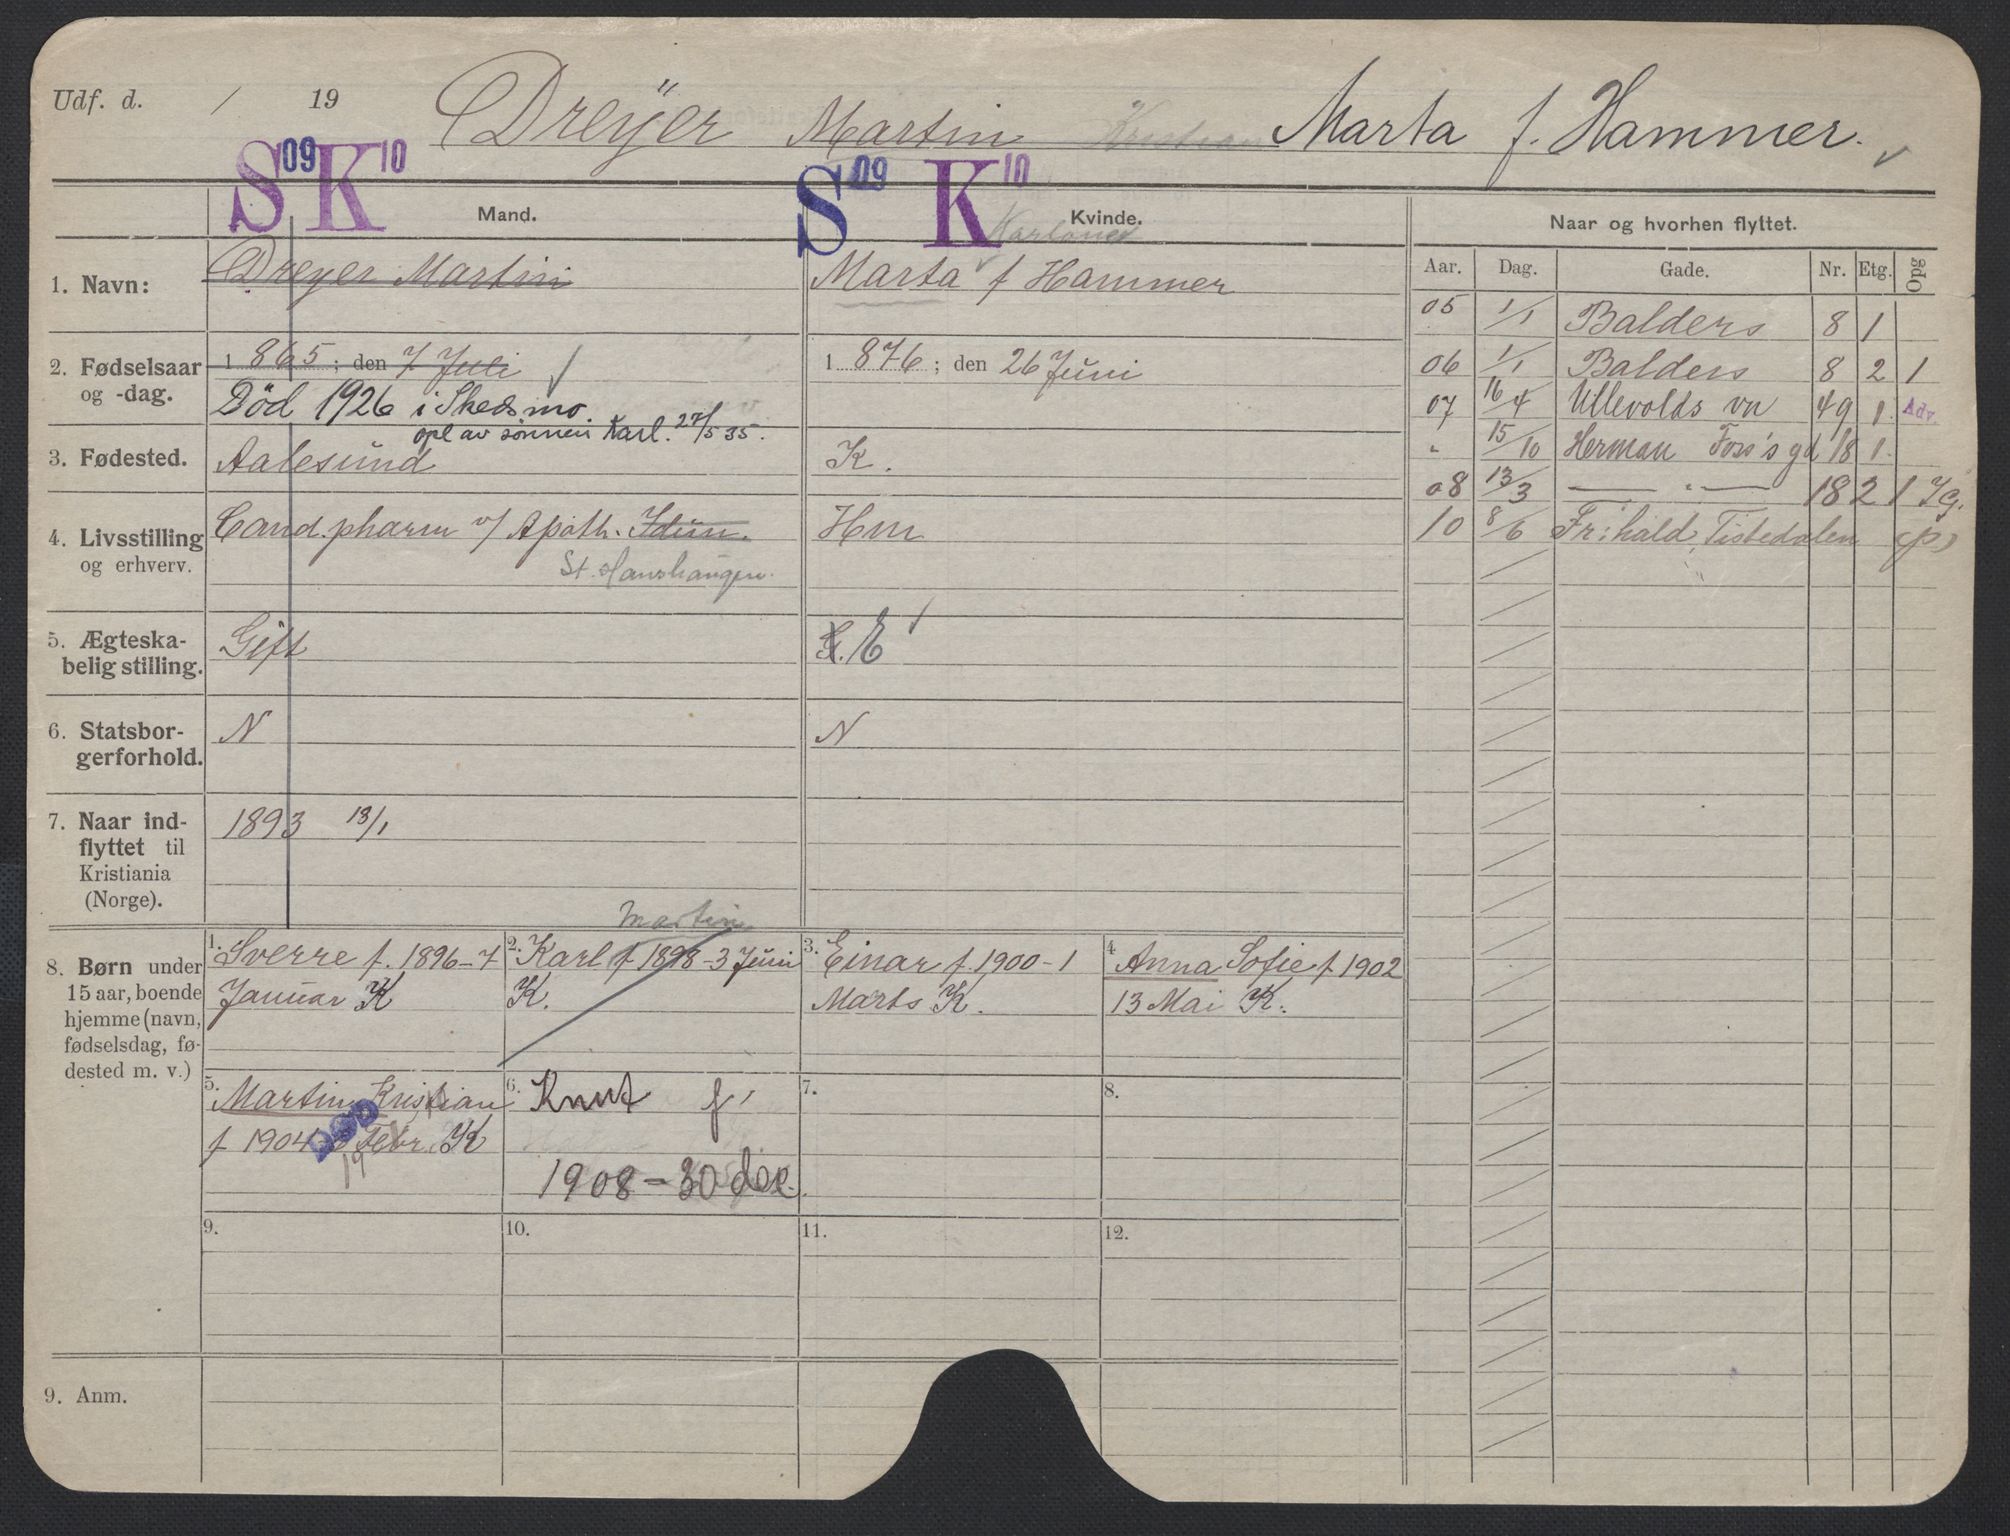 Udf. d. / 19 Dreyer Martin Kristian Marta f. Hammer.
S 09 K 10
S 09 K 10
Mand.
Kvinde.
Naar og hvorhen flyttet.
Aar. Dag. Gade. Nr. Etg. Opg
1. Navn: Dreyer Martin
Marta f Hammer
2. Fødselsaar og -dag. 1 865; den 7 Juli
1 876; den 26 Juni
Død 1926 i Skedsmo
opl av sønnen Karl. 27/5 35.
3. Fødested. Aalesund
K.
4. Livsstilling og erhverv. Cand. pharm v/ Apoth. Idun.
St. Hanshaugen.
Hm
5. Ægteska-
belig stilling. Gift
G. E
6. Statsbor-
gerforhold. N
N
7. Naar ind-
flyttet til
Kristiania
(Norge).
1893 13/1
8. Børn under
15 aar, boende
hjemme (navn,
fødselsdag, fø-
dested m. v.)
1. Sverre f. 1896-7
Januar K
Martin
2. Karl f 1898-3 Juni
K.
3. Einar f. 1900-1
Marts K.
4. Anna Sofie f 1902
13 Mai K.
5. Martin Kristian
f 1904 Febr. K
DØD
19
6. Knut f
1908-30 dec.
7.
8.
9.
10.
11.
12.
9. Anm.
05 1/1 Balders 8 1
06 1/1 Balders 8 2 1
07 16/4 Ullevolds vn 49 1 Adv.
" 15/10 Herman Foss's gd 18 1
08 13/3 — " — 18 2 1 Ig.
10 8/6 Fr:hald, Tistedalen (p)